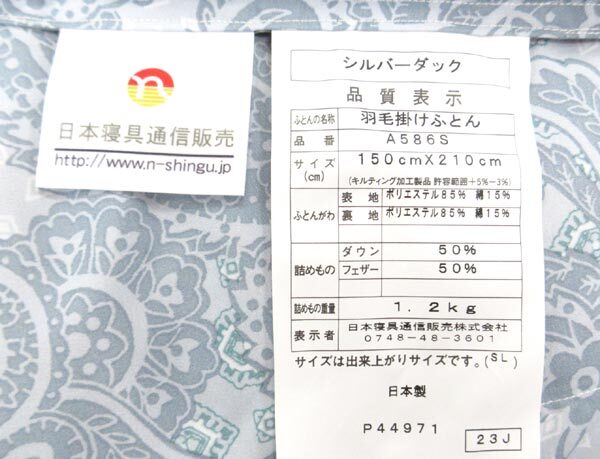 n
日本寝具通信販売
http://www.n-shingu.jp
シルバーダック
品質表示
ふとんの名称 羽毛掛けふとん
品番 A586S
サイズ(cm) 150cmX210cm
(キルティング加工製品 許容範囲+5%-3%)
ふとんがわ 表地 ポリエステル85% 綿15%
裏地 ポリエステル85% 綿15%
詰めもの ダウン 50%
フェザー 50%
詰めもの重量 1.2kg
表示者 日本寝具通信販売株式会社
0748-48-3601
サイズは出来上がりサイズです。(SL)
日本製
P44971
23J